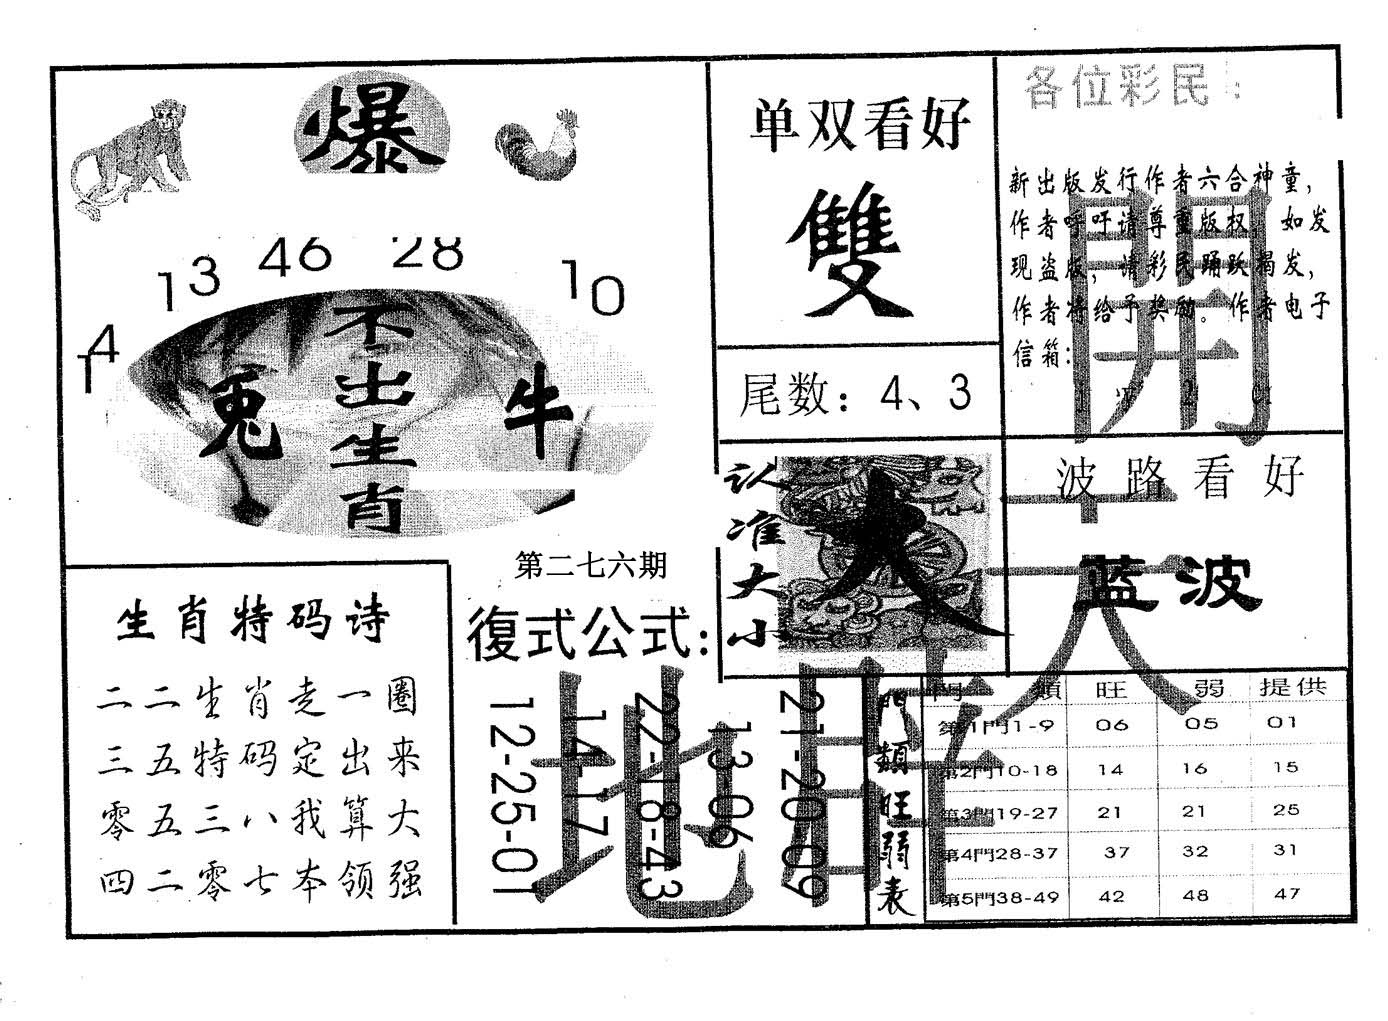 爆
14 13 46 28 10
不出生肖
兔
牛
单双看好
雙
尾数：4、3
各位彩民：
新出版发行作者六合神童，
作者呼吁请尊重版权，如发
现盗版，请彩民踊跃揭发，
作者将给予奖励。作者电子
信箱：
開
认准大小
大
波路看好
蓝波
天
第二七六期
復式公式：
12-25-01
14-17
22-18-43
13-06
21-20-09
地
生肖特码诗
二二生肖走一圈
三五特码定出来
零五三八我算大
四二零七本领强
門類旺弱表
門類 旺 弱 提供
第1門1-9 06 05 01
第2門10-18 14 16 15
第3門19-27 21 21 25
第4門28-37 37 32 31
第5門38-49 42 48 47